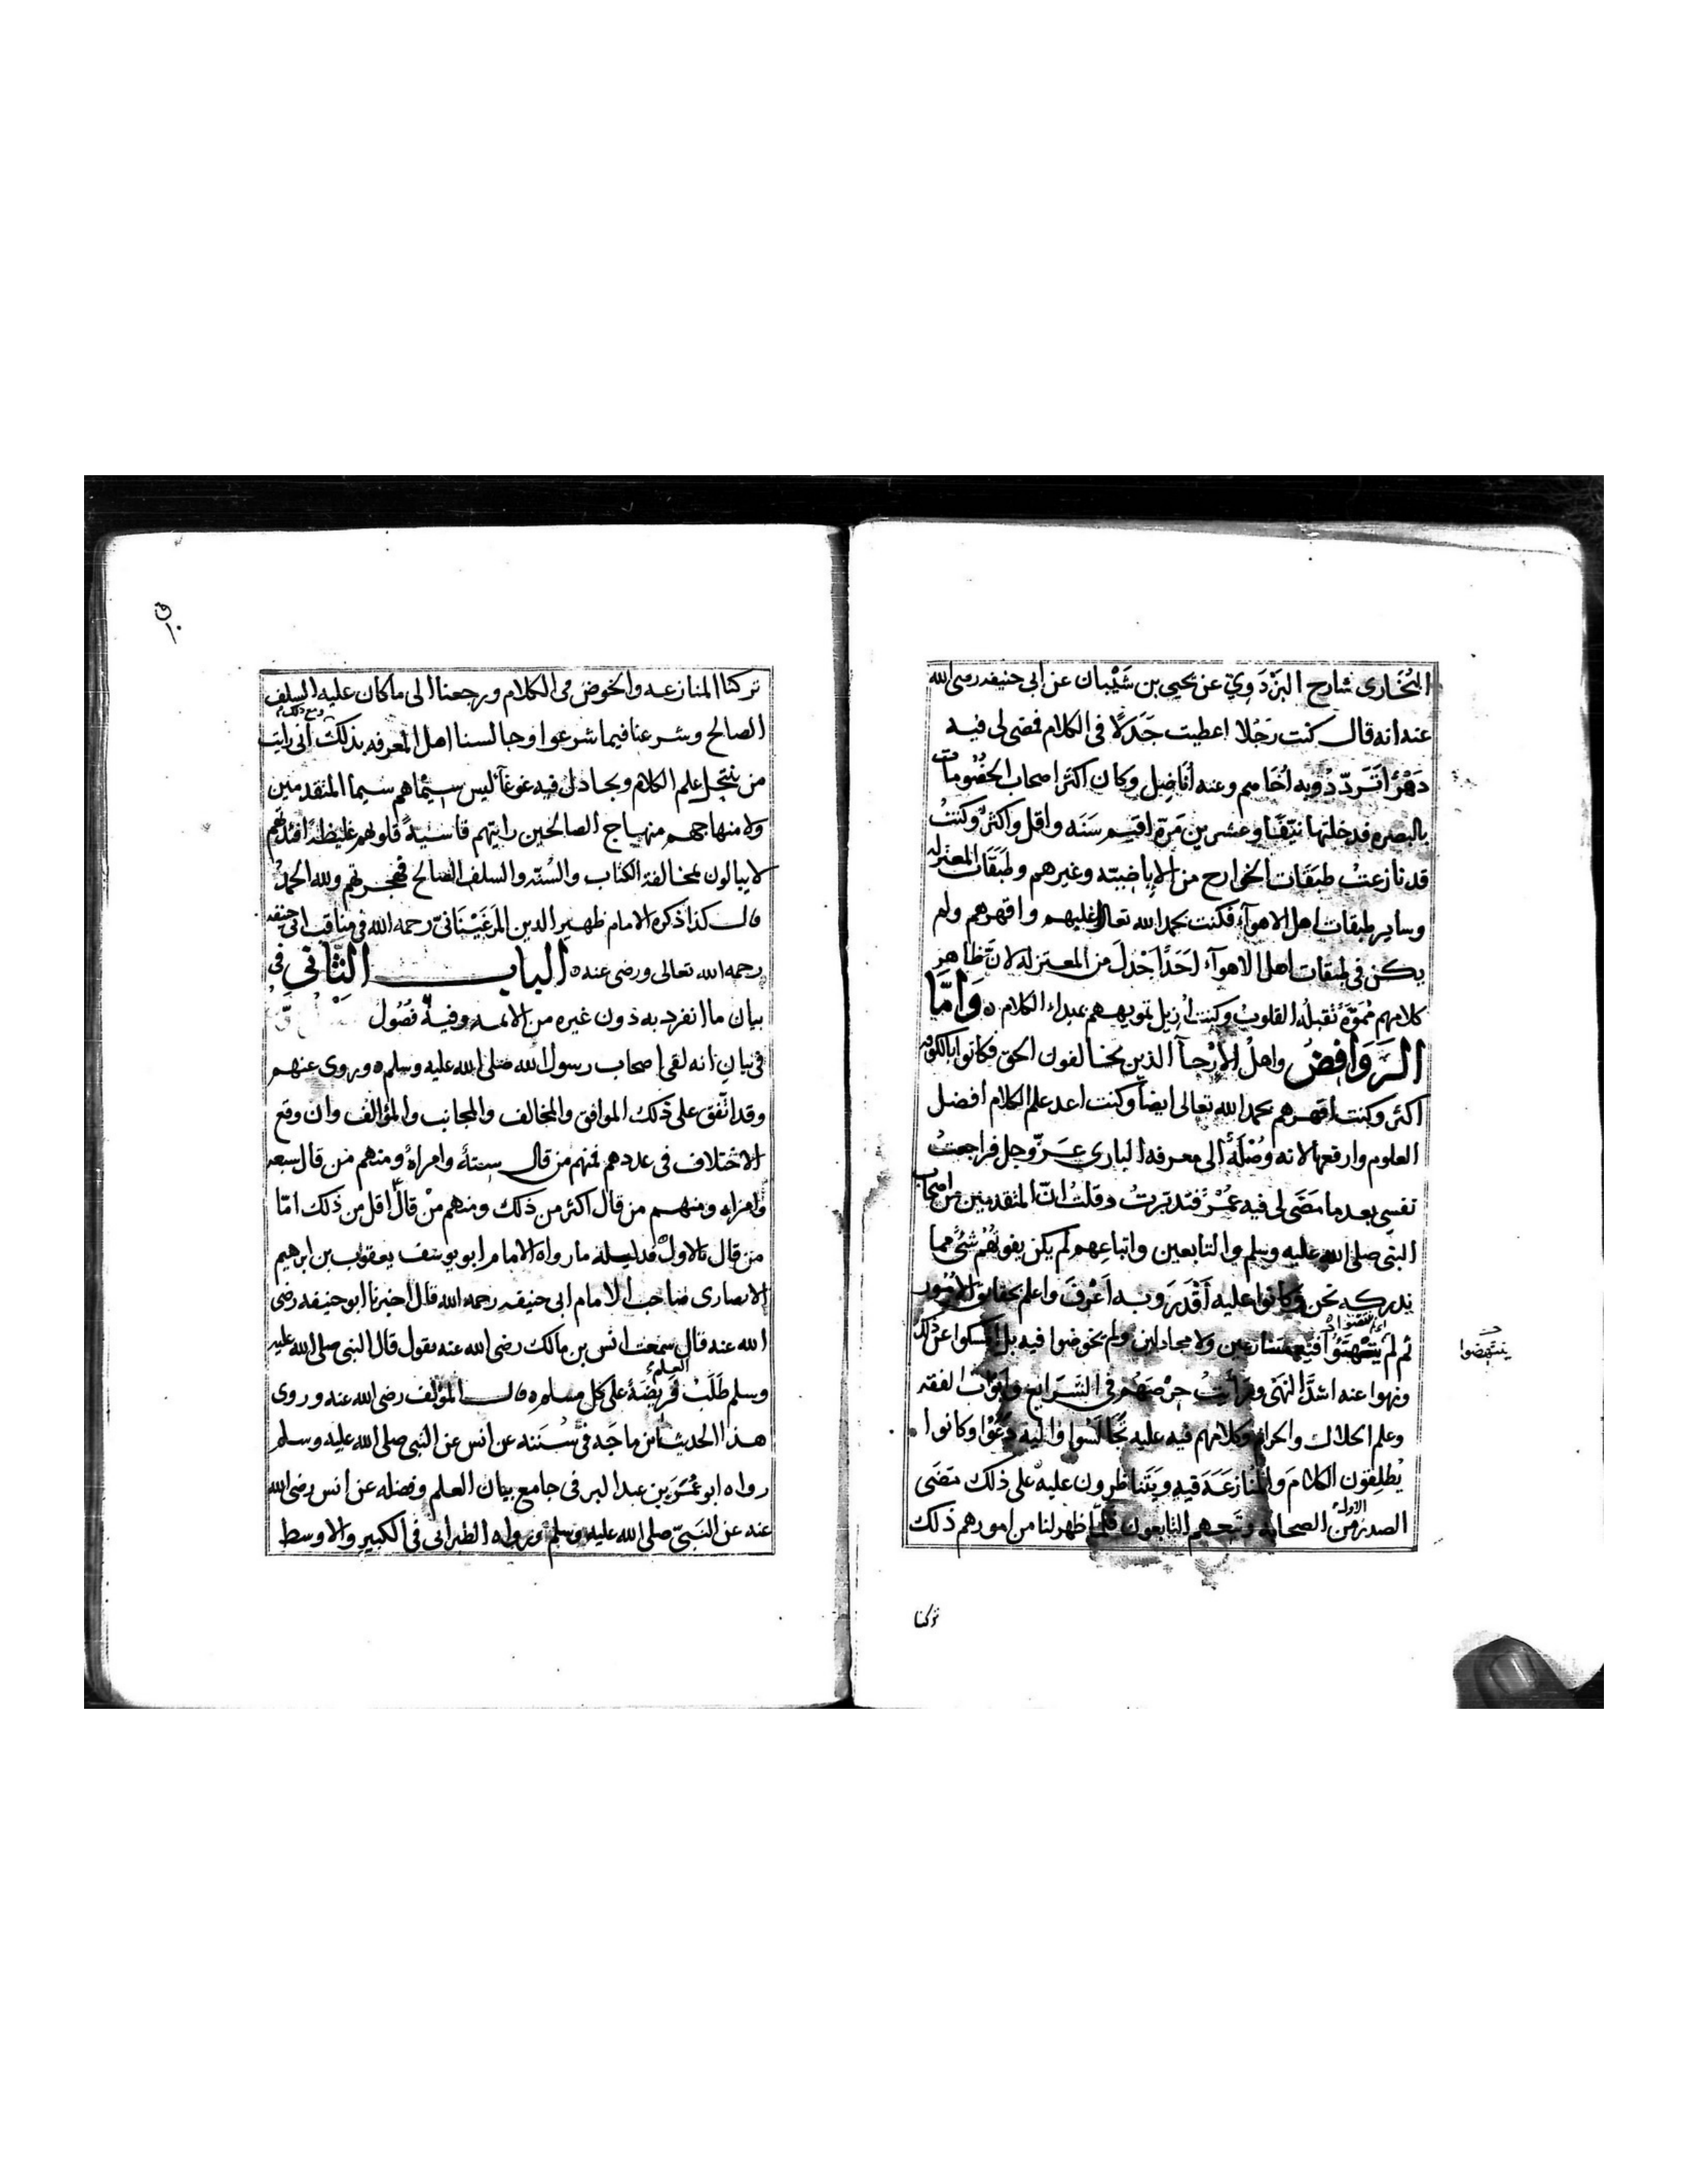 البُخَارى شارح البَزْدَوِيّ عن يحيى بن شَيْبان عن ابى حنيفه رضى الله
عنه انه قال كنت رَجُلا اعطيت جَدَلًا فى الكلام فمضى لى فيه
دَهْرٌ اَتَردّدُ وبه اُخاصِم وعنه اُناضِل وكان اكثر اصحاب الخصُومات
بالبصره فدخلتها نيّفًا وعشرين مَرّة اُقيم سَنَه واقل واكثر وكنتُ
قد نازعتُ طبقات الخوارج من الاباضيّه وغيرهم وطَبَقَات المعتزله
وساير طبقات اهل الاهوآء فكنت بحمد الله تعالى اغلبهم واقهرهم ولم
يكن فى طبقات اهل الاهوآء احَدًا اجْدلَ من المعتزله لانّ ظاهر
كلامهم مُمَوَّهٌ تقبلُه القلوبُ وكنت اُزيل تمويههم بمبداء الكلام ه وَامَّا
الرَّوَافِضُ واهلُ الاِرْجآ الذين يخالفون الحق فكانوا بالكوفه
اكثر وكنت اقهرهم بحمد الله تعالى ايضًا وكنت اعد علم الكلام افضل
العلوم وارفعها لانه وُصْلَةٌ الى معرفه البارى عَزّ وجل فراجعتُ
نفسى بعد ما مَضَى لى فيه عُمْرٌ فتدبّرتُ وقلتُ انّ المتقدمين من اصحاب
النبى صلى الله عليه وسلم والتابعين واتباعهم لم يكن يفوتُهُم شئ مما
ندركه نحن وكانوا عليه اَقْدَر وبه اَعْرَف واعلم بحقائق الامُور
ثم لم فيه متنازعين ولا مجادلين ولم يخوضوا فيه بل امسكوا عن ذلك
ينتهضوا
ونهوا عنه اشدَّ النهى ورأيتُ خوضَهُم فى الشَّرايع وابوَاب الفقه
وعلم الحلال والحرام وكلامهم فيه عليه تجَالَسُوا واليه دَعَوْا وكانوا
يُطلِقون الكلامَ والمُنازعَةَ فيه ويَتَناظرون عليه على ذلك مَضَى
الصدر الاول من الصحابه وتبعهم التابعون فلمّا ظهر لنا من امورهم ذلك
تركنا
ق ١٠
تركنا المنازعه والخوض فى الكلام ورجعنا الى ما كان عليه السلف
الصالح وشرعنا فيما شرعوا وجالسنا اهل المعرفه بذلك ومع ذلك انى رايت
من ينتحل علم الكلام ويجادل فيه غوغآ ليس سيْماهم سيما المتقدمين
ولا منهاجهم منهاج الصالحين رايتهم قاسيةً قلوبهم غليظةً افئدتهم
لا يبالون لمخالفة الكتاب والسُنّه والسلف الصالح فهجرتهم ولله الحمدُ
قال كذا ذكره الامام ظهير الدين المَرغَيْنَانىّ رحمه الله فى مناقب ابى حنيفه
رحمه الله تعالى ورضى عنه ه الباب الثَّانى فى
بيان ما انفرد به دون غيره من الايمه وفيه فصُول
فى بيان انه لقى اصحاب رسول الله صلى الله عليه وسلم ه وروى عنهم
وقد اتّفق على ذلك الموافق والمخالف والمجانب والمؤالف وان وقع
الاختلاف فى عددهم فمنهم من قال ستةً وامراة ومنهم من قال سبعه
وامراه ومنهم من قال اكثر من ذلك ومنهم منْ قال اقل من ذلك امّا
من قال بالاول فدليله ما رواه الامام ابو يوسف يعقوب بن ابرهيم
الانصارى صاحب الامام ابى حنيفه رحمه الله قال اخبرنا ابو حنيفه رضى
الله عنه قال سمعت انس بن مالك رضى الله عنه يقول قال النبى صلى الله عليه
وسلم طَلَبُ العلم فريضةٌ على كل مسلم ه قال المؤلف رضى الله عنه وروى
هذا الحديث ابن ماجَه فى سُنَنه عن انس عن النبى صلى الله عليه وسلم
رواه ابو عُمَرَ بن عبد البر فى جامع بيان العلم وفضله عن انس رضى الله
عنه عن النبىّ صلى الله عليه وسلم ورواه الطبرانى فى الكبير والاوسط